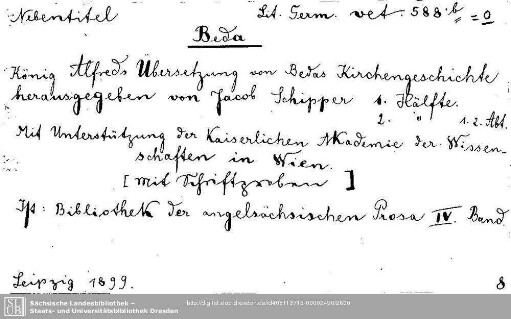 Nebentitel Lit. Germ. vet. 588.b = 0
Beda
König Alfreds Übersetzung von Bedas Kirchengeschichte
herausgegeben von Jacob Schipper 1. Hälfte.
2. " 1. 2. Abt.
Mit Unterstützung der Kaiserlichen Akademie der Wissen-
schaften in Wien.
[mit Schriftproben]
Bibliothek der angelsächsischen Prosa IV. Band
Leipzig 1899. 8
Sächsische Landesbibliothek –
Staats- und Universitätsbibliothek Dresden